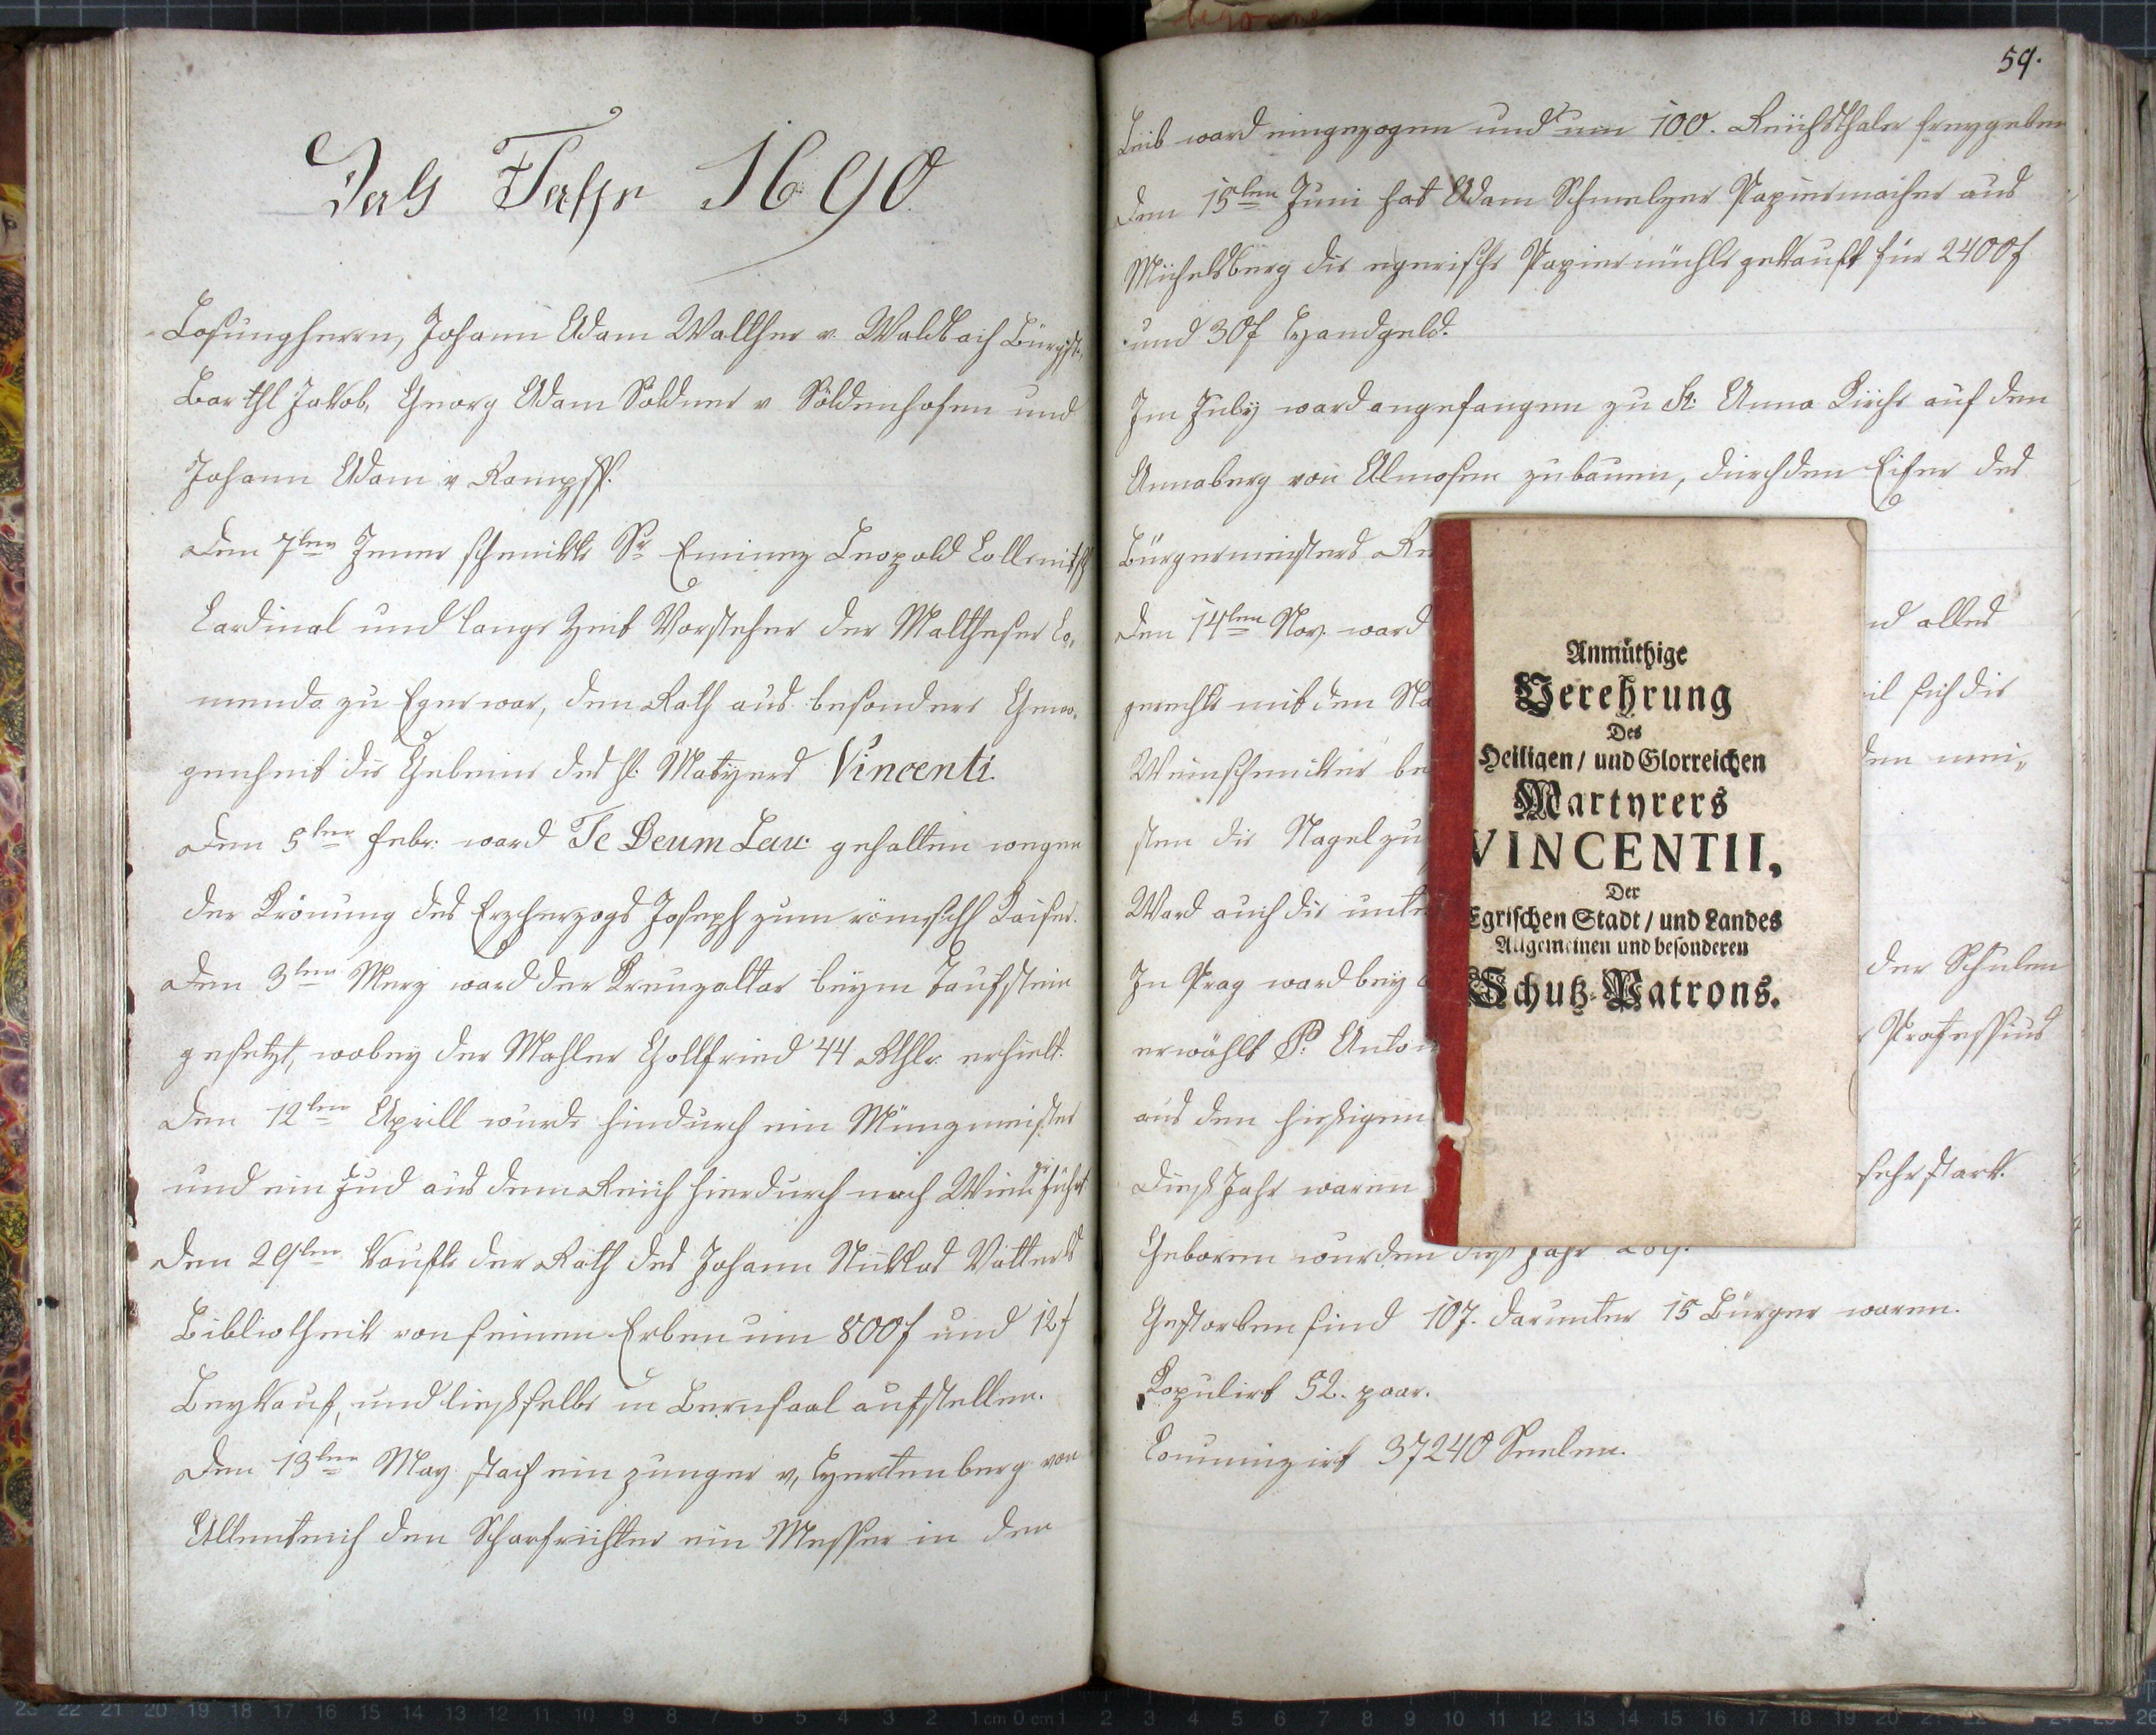 Das Jahr 1690
Losungherrn, Johann Adam Wallther v. Waldbach Bürgst.,
Barthl Jakob, Georg Adam Söldner v Söldenhofen und
Johann Adam v Rampff.
Den 7ten Jenner schenkte Sr Eminenz Leopold Collonitsch
Cardinal und lange Zeit Vorsteher der Maltheser Co,
menda zu Eger war, dem Rath aus besonderer Gewo,
genheit die Gebeine des hl: Martyrers Vincenti.
Den 5ten Febr: ward Te Deum Lau: gehalten wegen
der Krönung des Erzherzogs Joseph zum römisch Kaiser.
Den 3ten Merz ward der Kreuzaltar beym Taufstein
gesetzt, wobey der Mahler Gottfried 44 Rthlr. erhielt.
Den 12ten Aprill wurde hindurch ein Münzmeister
und ein Jud aus dem Reich hierdurch nach Wien geführt
Den 29ten kaufte der Rath des Johann Nicklas Vetterls
Bibliotheck von seinen Erben um 800f und 12f
Leykauf, und ließ selbe in Lernsaal aufstellen.
Den 13ten May stach ein junger v, Hertenberg von
Altenteich den Scharfrichter ein Messer in den
59.
Leib ward eingezogen und um 100. Reichsthaler freygeben
Den 15ten Juni hat Adam Schmelzer Papiermacher aus
Michelsberg die egerische Papiermühle gekauft für 2400f
und 30f Handgeld.
Im July ward angefangen zu St: Anna Kirche auf den
Annaberg von Almosen zu bauen, durch den Eifer des
Bürgermeisters
Den 14ten Nov. ward nd alles
gerechte mit den il sich die
Weinschenken be den mei,
sten die Nagel zu
Ward auch die unte
In Prag ward bey der Schulen
erwählt P: Anton Professius
aus den hiesigen
Dieß Jahr waren sehr stark.
Geboren wurden dieß Jahr
Gestorben sind 107. darunter 15 Bürger waren.
Kopulirt 52. paar.
Communizirt 37240 Seelen.
Anmüthige
Verehrung
Des
Heiligen / und Glorreichen
Martyrers
VINCENTII,
Der
Egrischen Stadt / und Landes
Allgemeinen und besonderen
Schutz-Patrons.